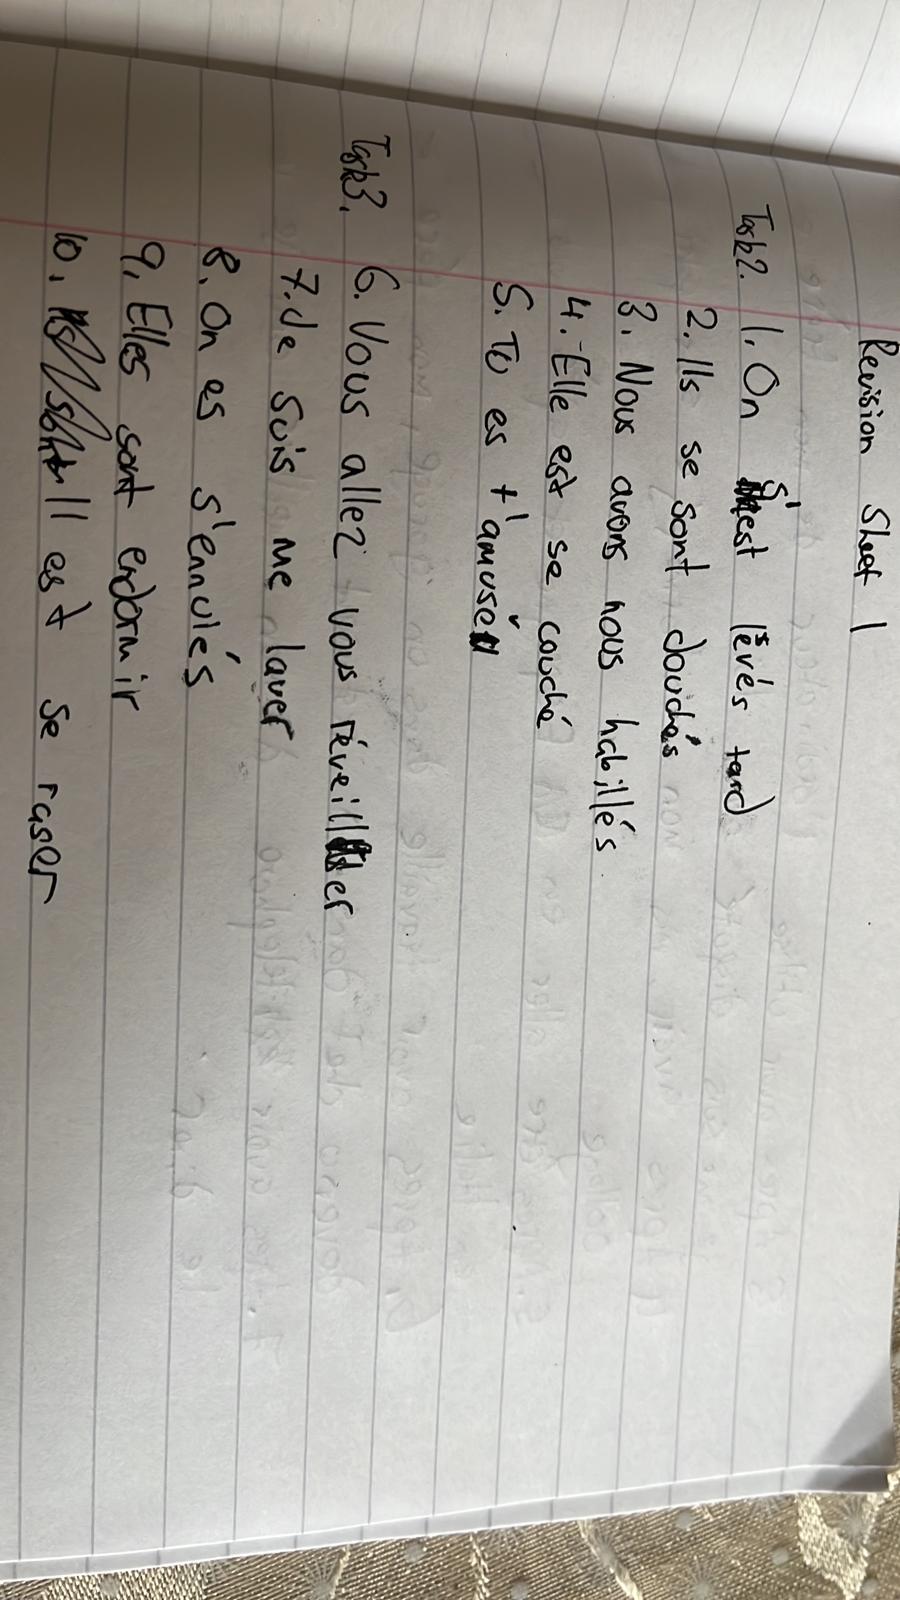 Revision Sheet 1
Task2. 1. On s'est levés tard
2. Ils se sont douchés
3. Nous avons nous habillés
4. Elle est se couché
5. Tu es t'amusé
Task3. 6. Vous allez vous réveiller
7. Je suis me laver
8. On es s'ennuiés
9. Elles sont endormir
10. Il est se raser